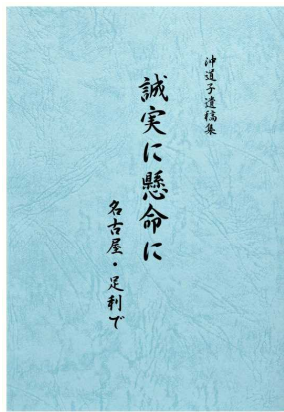 沖道子遺稿集
誠実に懸命に
名古屋・足利で